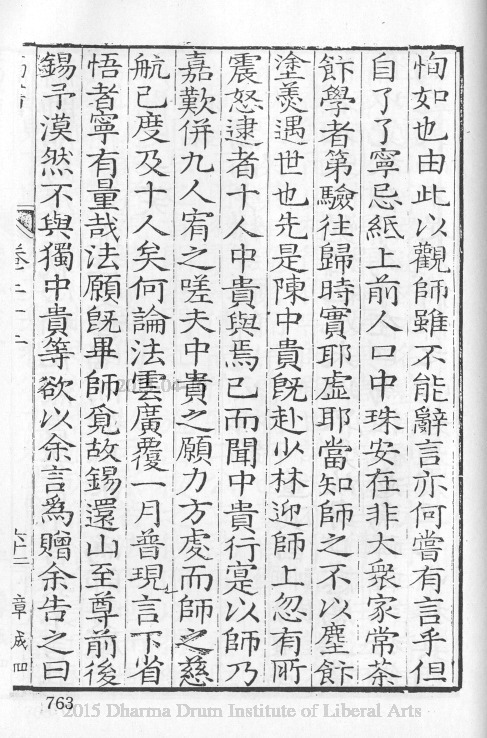 恂如也由此以觀師雖不能辭言亦何嘗有言乎但
自了了寧忌紙上前人口中珠安在非大衆家常茶
飰學者第驗往歸時實耶虛耶當知師之不以塵飰
塗羹遇世也先是陳中貴旣赴少林迎師上忽有所
震怒逮者十人中貴與焉已而聞中貴行寔以師乃
嘉歎併九人宥之嗟夫中貴之願力方虔而師之慈
航已度及十人矣何論法雲廣覆一月普現言下省
悟者寧有量哉法願旣畢師覓故錫還山至尊前後
錫予漠然不與獨中貴等欲以余言爲贈余告之曰
卷二十二
六十二
章成四
763
2015 Dharma Drum Institute of Liberal Arts